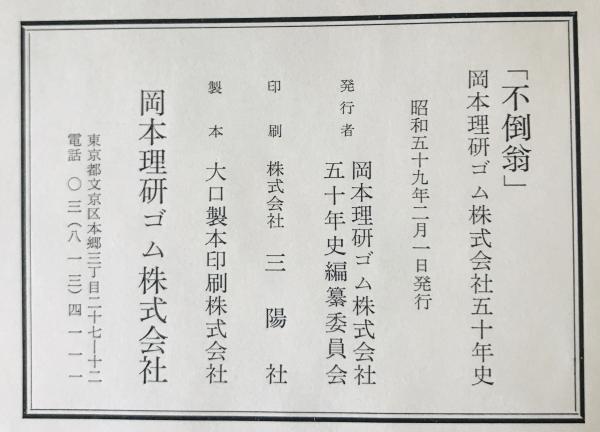 「不倒翁」
岡本理研ゴム株式会社五十年史
昭和五十九年二月一日発行
発行者 岡本理研ゴム株式会社
五十年史編纂委員会
印刷 株式会社 三陽社
製本 大口製本印刷株式会社
岡本理研ゴム株式会社
東京都文京区本郷三丁目二十七―十二
電話 〇三(八一三)四一一一